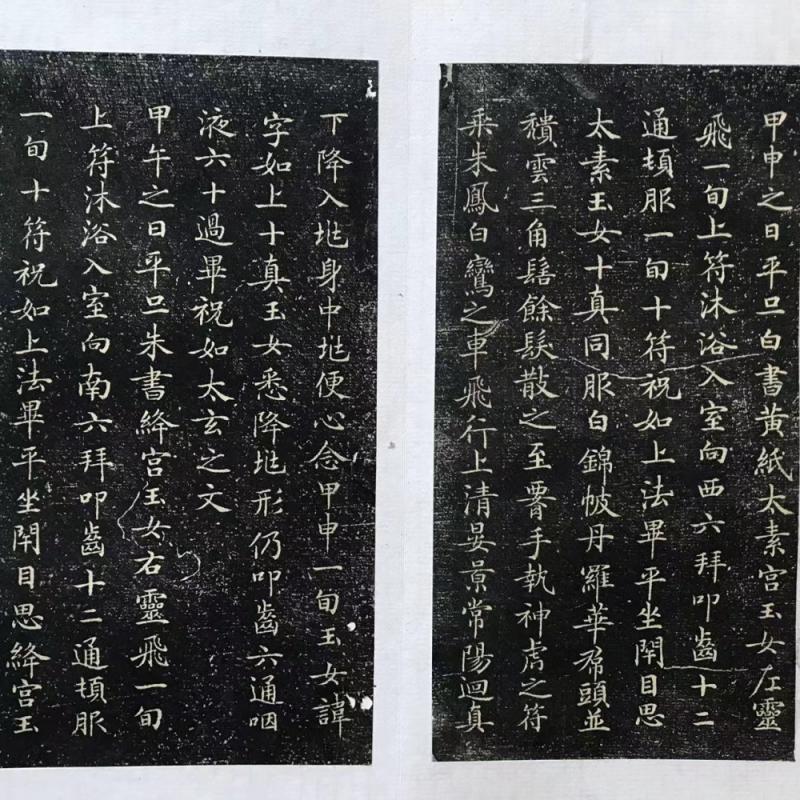 甲申之日平旦白書黃紙太素宮玉女左靈
飛一旬上符沐浴入室向西六拜叩齒十二
通頓服一旬十符祝如上法畢平坐閇目思
太素玉女十真同服白錦帔丹羅華帬頭並
穨雲三角髻餘髮散之至𦝫手執神虎之符
乘朱鳳白鸞之車飛行上清晏景常陽迴真
下降入𡉏身中𡉏便心念甲申一旬玉女諱
字如上十真玉女悉降𡉏形仍叩齒六通咽
液六十過畢祝如太玄之文
甲午之日平旦朱書絳宮玉女右靈飛一旬
上符沐浴入室向南六拜叩齒十二通頓服
一旬十符祝如上法畢平坐閇目思絳宮玉